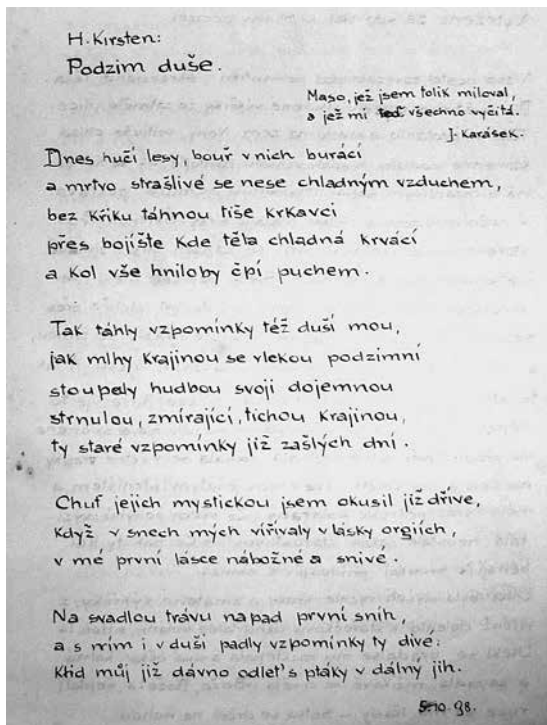 H. Kirsten:
Podzim duše.
Maso, jež jsem tolik miloval,
a jež mi teď všechno vyčítá.
J. Karásek.
Dnes hučí lesy, bouř v nich burácí
a mrtvo strašlivé se nese chladným vzduchem,
bez křiku táhnou tiše krkavci
přes bojiště kde těla chladná krvácí
a kol vše hniloby čpí puchem.
Tak táhly vzpomínky též duší mou,
jak mlhy krajinou se vlekou podzimní
stoupaly hudbou svojí dojemnou
strnulou, zmírající, tichou krajinou,
ty staré vzpomínky již zašlých dní.
Chuť jejich mystickou jsem okusil již dříve,
když v snech mých vířívaly v lásky orgiích,
v mé první lásce nábožné a snivé.
Na svadlou trávu napad první sníh
a s ním i v duši padly vzpomínky ty divé:
Klid můj již dávno odlet' s ptáky v dálný jih.
5.10.98.